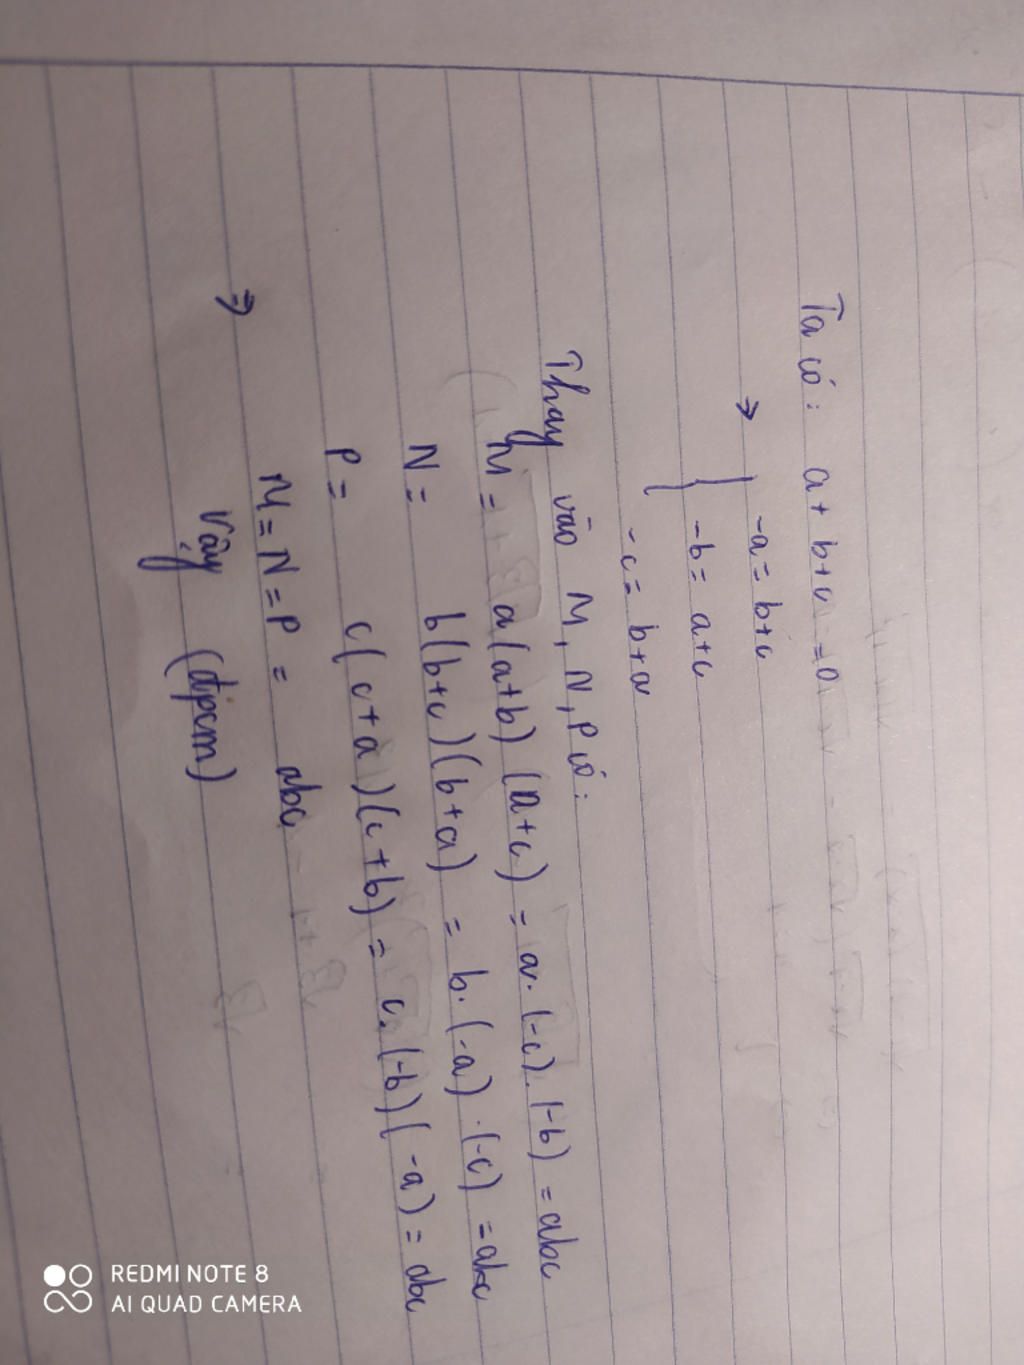 Ta có: a + b + c = 0
⇒ { -a = b+c
-b = a+c
-c = b+a
Thay vào M, N, P có:
M = a(a+b)(a+c) = a.(-c).(-b) = abc
N = b(b+c)(b+a) = b.(-a).(-c) = abc
P = c(c+a)(c+b) = c.(-b)(-a) = abc
⇒ M = N = P = abc
Vậy (đpcm)
REDMI NOTE 8
AI QUAD CAMERA